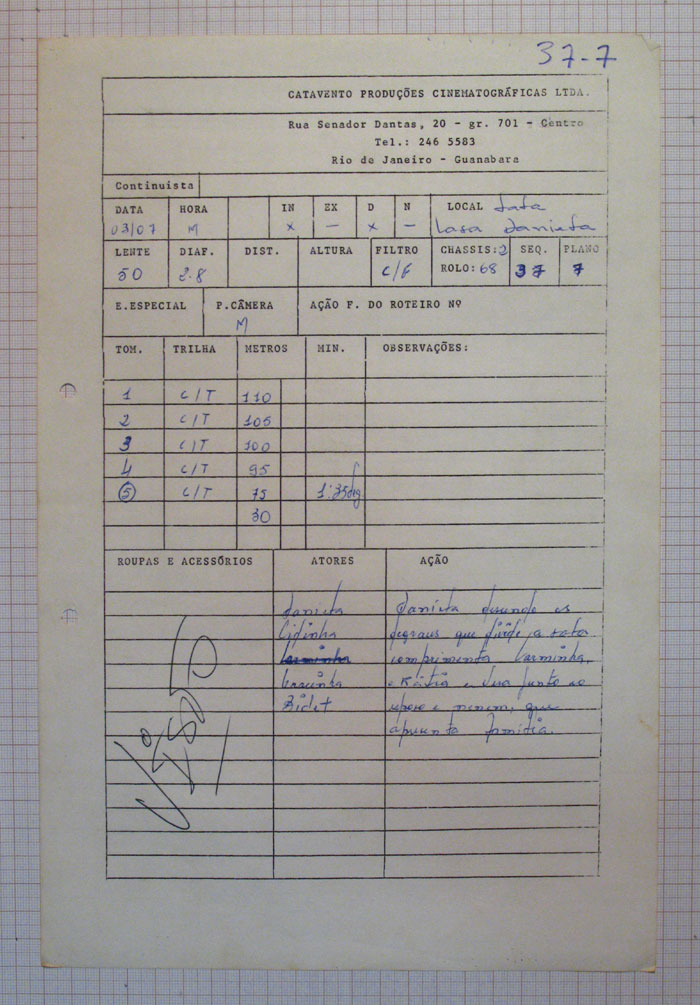 37-7
CATAVENTO PRODUÇÕES CINEMATOGRÁFICAS LTDA.
Rua Senador Dantas, 20 - gr. 701 - Centro
Tel.: 246 5583
Rio de Janeiro - Guanabara
Continuista
DATA HORA IN EX D N LOCAL
03/07 M x — x — Casa Danieta
LENTE DIAF. DIST. ALTURA FILTRO CHASSIS:2 SEQ. PLANO
50 2.8 C/F ROLO: 68 37 7
E.ESPECIAL P.CÂMERA AÇÃO F. DO ROTEIRO Nº
M
TOM. TRILHA METROS MIN. OBSERVAÇÕES:
1 C/T 110
2 C/T 105
3 C/T 100
4 C/T 95
5 C/T 75 1:35
30
ROUPAS E ACESSÓRIOS ATORES AÇÃO
Danieta Danieta os
Cidinha degraus que divide a sala
comprimenta Carminha,
e Kátia e junto ao
Bidet e que
apresenta família.
VISO